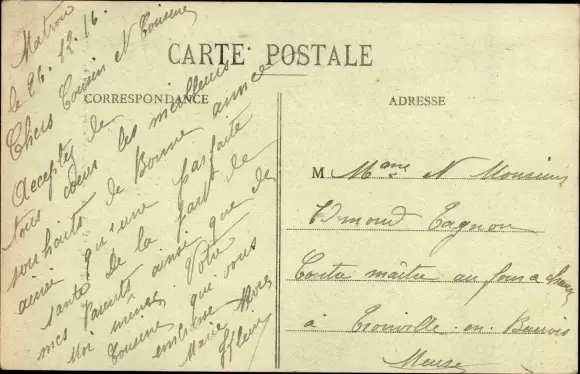 CARTE POSTALE
CORRESPONDANCE
ADRESSE
Matton
le 26.12.16.
Chers Cousin et Cousine
Acceptez de
tous cœur les meilleurs
souhaits de Bonne année
ainsi qu'une parfaite
santé de la part de
mes Parents ainsi que de
Moi même. Votre
Cousine qui vous
embrasse
Marie
M Mme et Monsieur
Edmond Tagnon
Contre maître au four a chaux
à Tronville-en-Barrois
Meuse